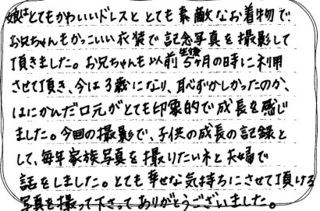 娘はとてもかわいいドレスととても素敵なお着物で
お兄ちゃんもかっこいい衣装で記念写真を撮影して
頂きました。お兄ちゃんも以前生後5ヶ月の時に利用
させて頂き、今は3歳になり、恥ずかしかったのか、
はにかんだ口元がとても印象的で成長を感じ
ました。今回の撮影で、子供の成長の記録と
して、毎年家族写真を撮りたいネと夫婦で
話をしました。とても幸せな気持ちにさせて頂ける
写真を撮って下さってありがとうございました。